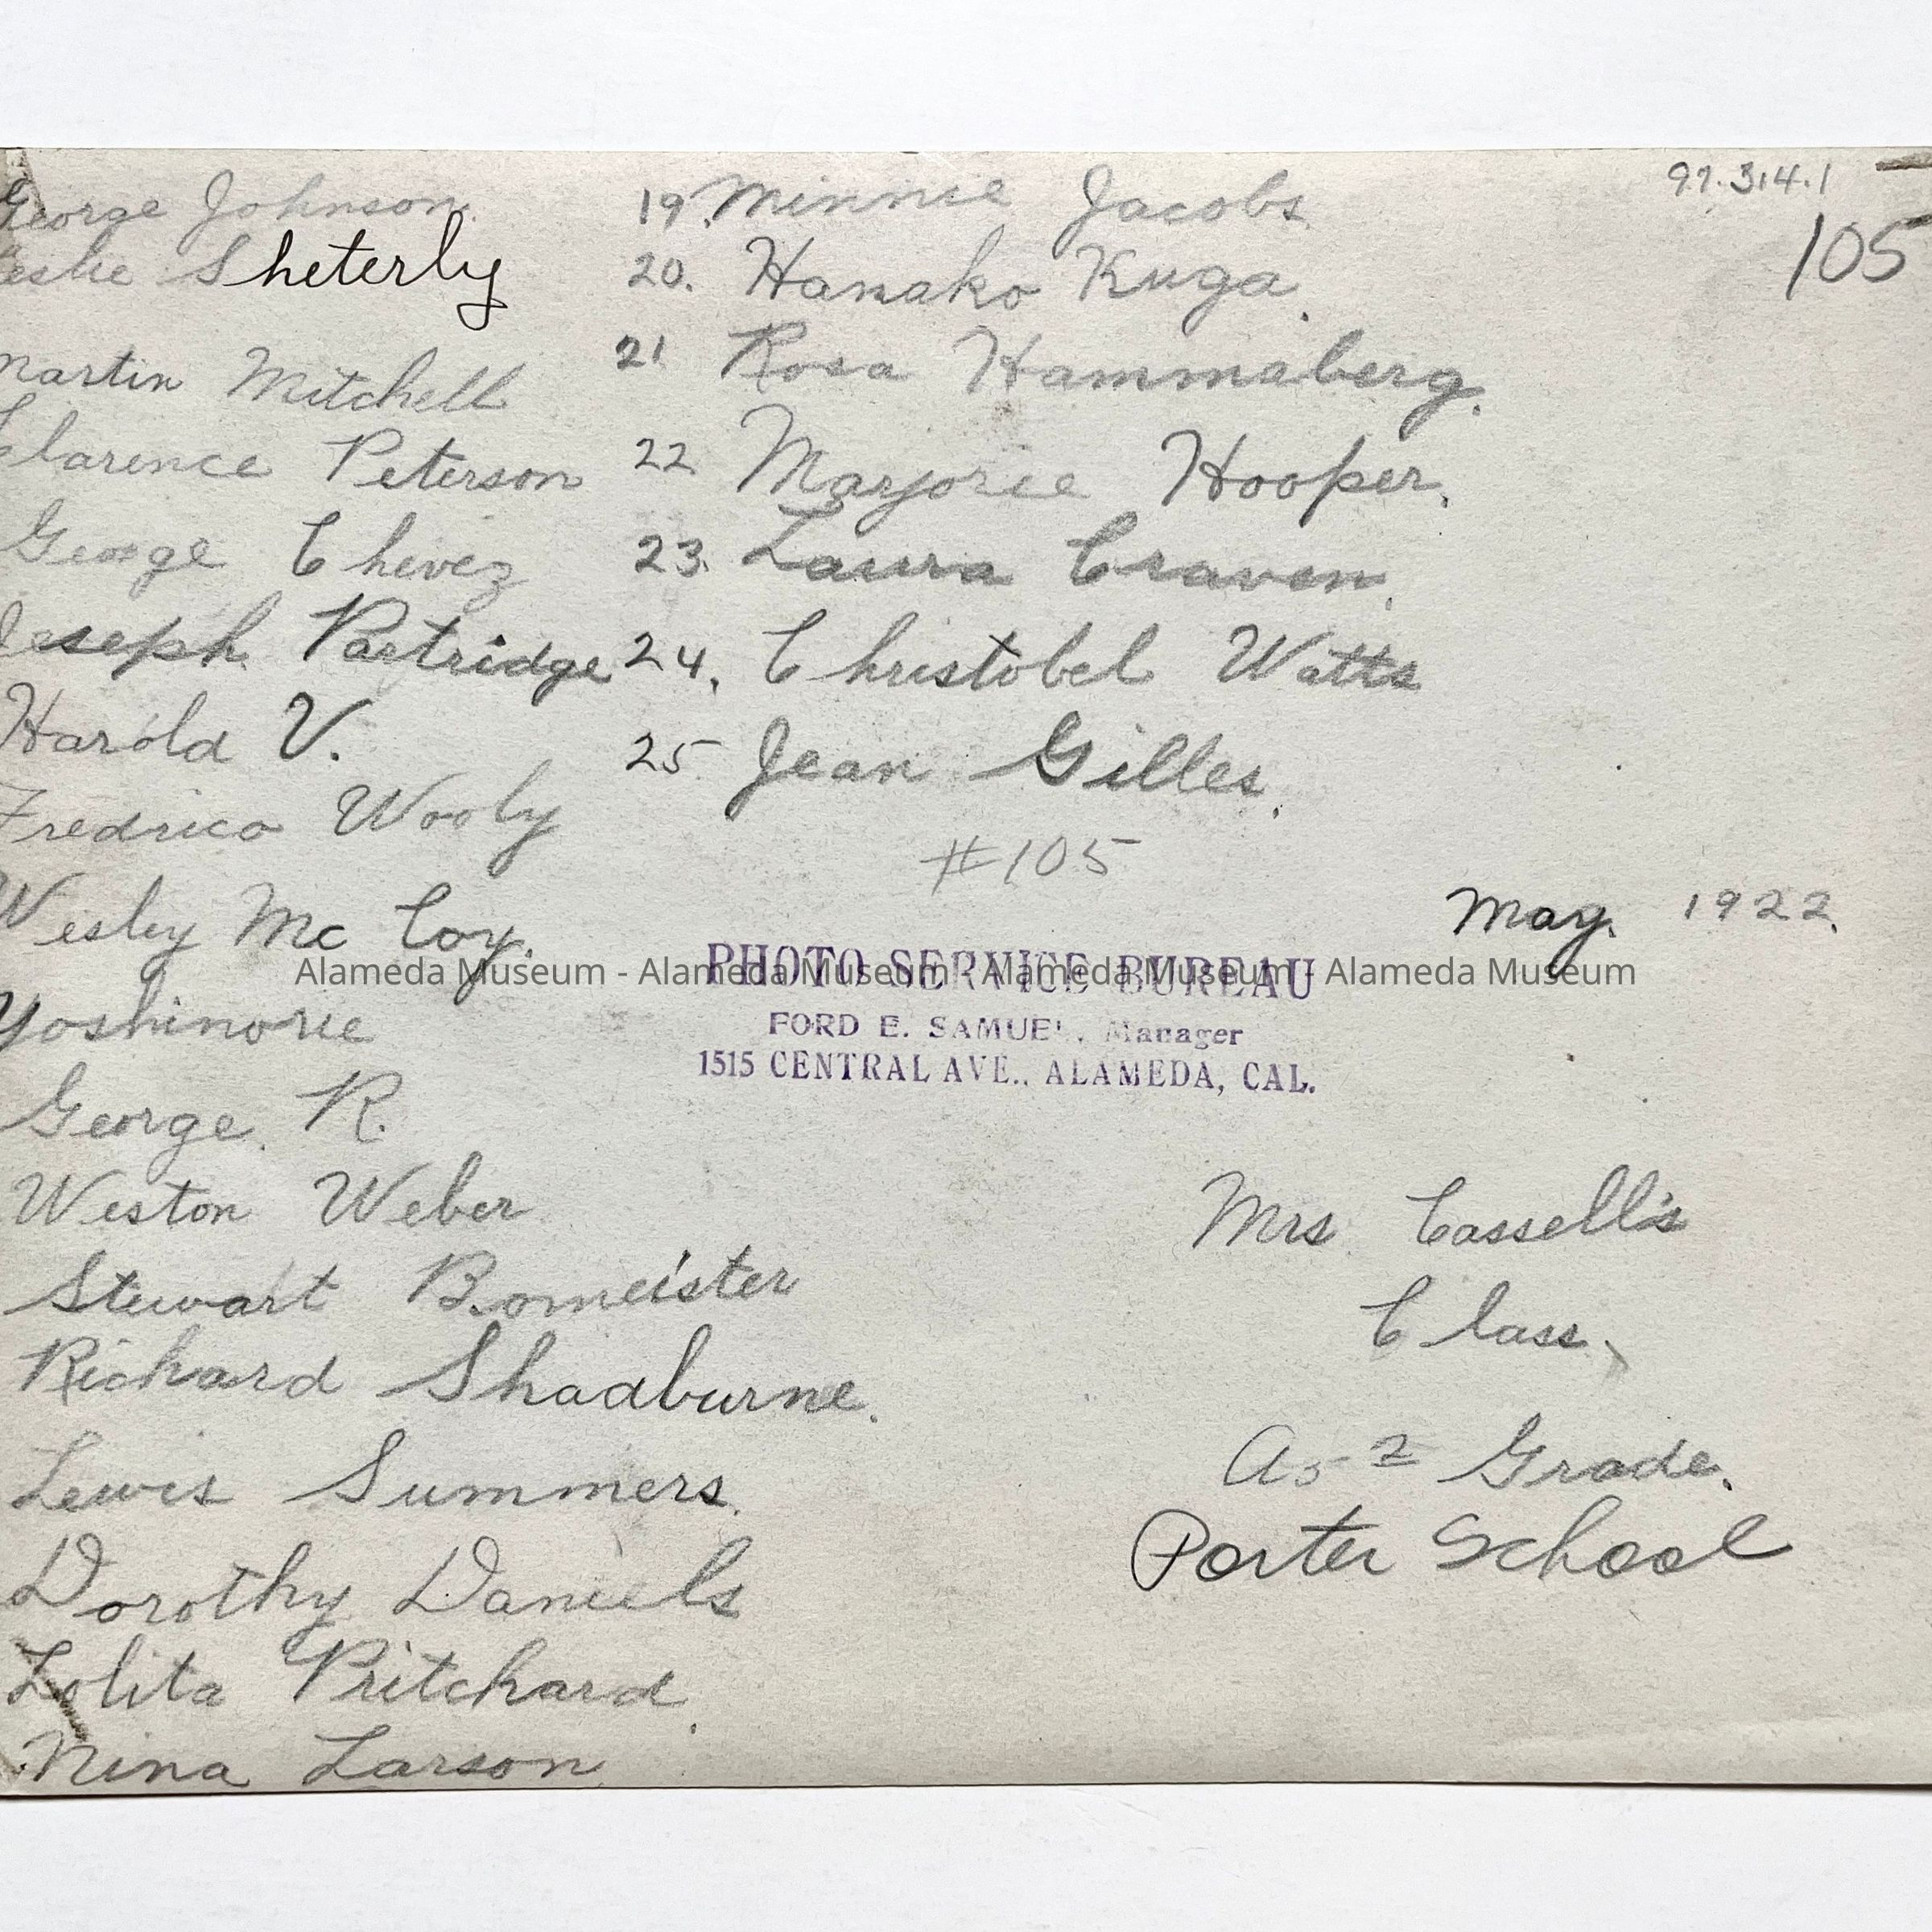 George Johnson.
eslie Sheterly
Martin Mitchell
Clarence Peterson
George Chevez
Joseph Partridge
Harold V.
Fredrico Wooly
Wesley Mc Coy.
Yoshinorie
George R.
Weston Weber
Stewart Bomeister
Richard Shadburne.
Lewis Summers.
Dorothy Daniels
Lolita Pritchard.
Nina Larson.
19. Minnie Jacobs
20. Hanako Kuga.
21 Rosa Hammaberg.
22 Marjorie Hooper.
23. Laura Craven.
24. Christobel Watts
25 Jean Gilles.
#105
97.314.1
105
May. 1922.
PHOTO SERVICE BUREAU
Alameda Museum - Alameda Museum - Alameda Museum - Alameda Museum
FORD E. SAMUEL, Manager
1515 CENTRAL AVE., ALAMEDA, CAL.
Mrs Cassell's
Class.
A5-2 Grade.
Porter School